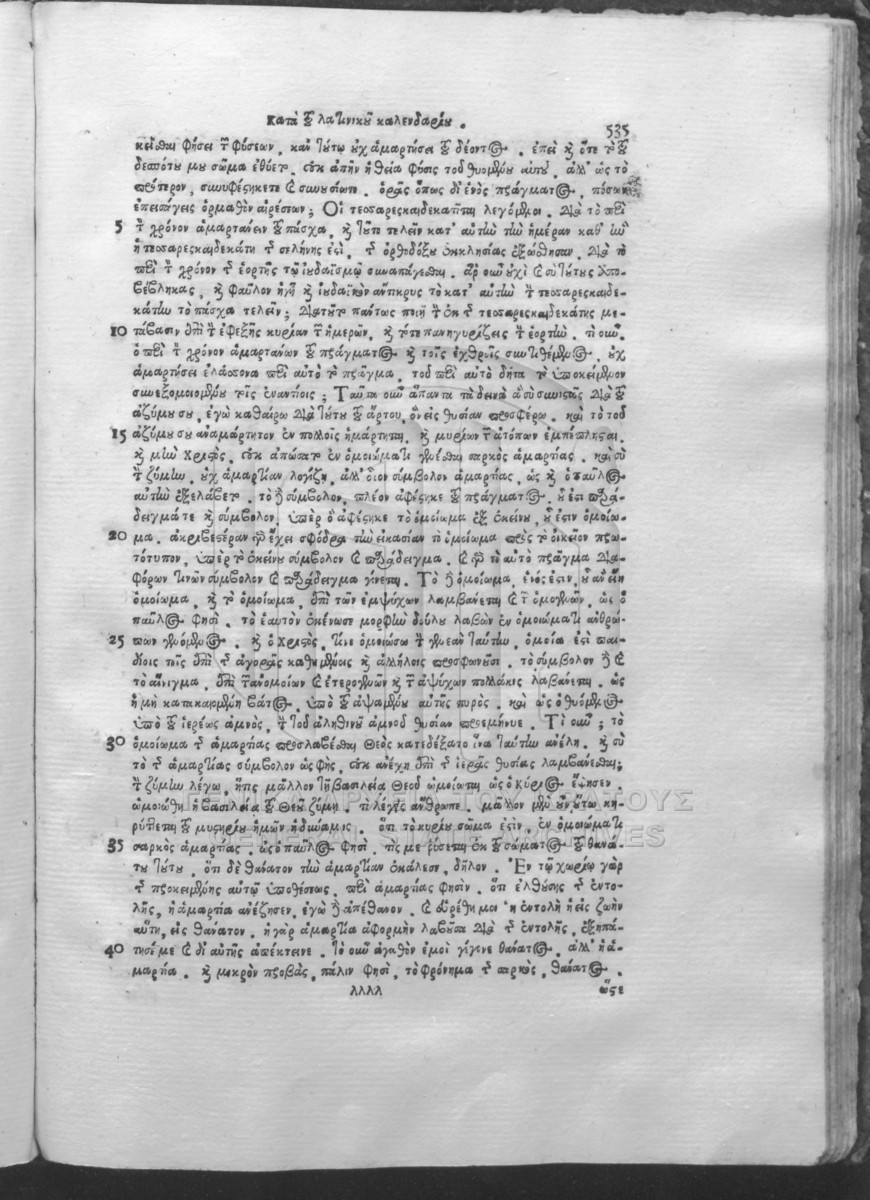 Κατὰ τοῦ λατινικοῦ καλενδαρίου. 535
κεῖσθαι φήσει τῶν φύσεων, καὶ τούτῳ οὐχ ἁμαρτήσει τοῦ δέοντος. ἐπεὶ καὶ ὅτε τὸ τοῦ
δεσπότου μου σῶμα ἐθύετο, οὐκ ἀπῆν ἡ θεία φύσις τοῦ θυομένου αὐτοῦ, ἀλλ' ὡς τὸ
πρότερον, συνυφέστηκέ τε καὶ συνῆν. ὁρᾷς ὅπως δι' ἑνὸς πράγματος, πόσων
ἐπεισάγεις ὁρμαθὸν αἱρέσεων; Οἱ τεσσαρεσκαιδεκατῖται λεγόμενοι, διὰ τὸ περὶ
5 τὸν χρόνον ἁμαρτάνειν τοῦ πάσχα, καὶ τοῦτο τελεῖν κατ' αὐτὴν τὴν ἡμέραν καθ' ἣν
ἡ τεσσαρεσκαιδεκάτη τῆς σελήνης ἐστὶ, τῆς ὀρθοδόξου ἐκκλησίας ἐξώσθησαν, διὰ τὸ
περὶ τὸν χρόνον τῆς ἑορτῆς τῷ ἰουδαϊσμῷ συναπάγεσθαι. ἆρ' οὖν οὐχὶ καὶ σὺ τούτους ἀπο-
βέβληκας, καὶ φαῦλον ἡγῇ καὶ ἰουδαϊκὸν ἄντικρυς τὸ κατ' αὐτὴν τὴν τεσσαρεσκαιδε-
κάτην τὸ πάσχα τελεῖν; διὰ τοῦτο πάντως ποιῇ τὴν ἐκ τῆς τεσσαρεσκαιδεκάτης με-
10 τάβασιν ἐπὶ τὴν ἐφεξῆς κυρίαν τῶν ἡμερῶν, καὶ τότε πανηγυρίζεις τὴν ἑορτήν. τί οὖν,
ὁ περὶ τὸν χρόνον ἁμαρτάνων τοῦ πράγματος καὶ τοῖς ἐχθροῖς συντιθέμενος, οὐχ
ἁμαρτήσει ἐλάσσονα περὶ αὐτὸ τὸ πρᾶγμα, τοῦ περὶ αὐτὸ δῆτα τὸ ὑποκείμενον
συνεξομοιουμένου τοῖς ἐναντίοις; Ταῦτα οὖν ἅπαντα τὰ δεινὰ ἃ σὺ συνιστᾷς διὰ τοῦ
ἀζύμου σου, ἐγὼ καθαίρω διὰ τούτου τοῦ ἄρτου, ὃν εἰς θυσίαν προσφέρω. καὶ τὸ τοῦ
15 ἀζύμου σου ἀναμάρτητον ἐν πολλοῖς ἡμάρτηται, καὶ μυρίων τῶν ἀτόπων ἐμπέπλησται.
καὶ μὴν Χριστὸς, οὐκ ἀπώσατο ἐν ὁμοιώματι γενέσθαι σαρκὸς ἁμαρτίας. καὶ σὺ
τὴν ζύμην, οὐχ ἁμαρτίαν λογίζῃ, ἀλλ' οἷον σύμβολον ἁμαρτίας, ὡς καὶ ὁ παῦλος
αὐτὴν ἐξελάβετο. τὸ δὲ σύμβολον, πλέον ἀφέστηκε τοῦ πράγματος, οὗ ἐστὶ παρά-
δειγμά τε καὶ σύμβολον, ὑπὲρ ὃ ἀφέστηκε τὸ ὁμοίωμα ἐξ ἐκείνου, οὗ ἐστιν ὁμοίω-
20 μα. ἀκριβεστέραν γὰρ ἔχει σφόδρα τὴν εἰκασίαν τὸ ὁμοίωμα πρὸς τὸ οἰκεῖον πρω-
τότυπον, ὑπὲρ τὸ ἐκείνου σύμβολον καὶ παράδειγμα. καὶ γὰρ τὸ αὐτὸ πρᾶγμα δια-
φόρων τινῶν σύμβολον καὶ παράδειγμα γίνεται. Τὸ δὲ ὁμοίωμα, ἑνός ἐστιν, οὗ ἂν εἴη
ὁμοίωμα, καὶ τὸ ὁμοίωμα, ἐπὶ τῶν ἐμψύχων λαμβάνεται καὶ τῶν ὁμογενῶν, ὡς ὁ
παῦλος φησὶ, τὸ ἑαυτὸν ἐκένωσε μορφὴν δούλου λαβὼν ἐν ὁμοιώματι ἀνθρώ-
25 πων γενόμενος. καὶ ὁ Χριστὸς, τίνι ὁμοιώσω τὴν γενεὰν ταύτην, ὁμοία ἐστὶ παι-
δίοις τοῖς ἐπὶ τῆς ἀγορᾶς καθημένοις καὶ ἀλλήλοις προσφωνοῦσι. τὸ σύμβολον δὲ καὶ
τὸ αἴνιγμα, ἐπὶ τῶν ἀνομοίων καὶ ἑτερογενῶν καὶ τῶν ἀψύχων πολλάκις λαμβάνεται. ὡς
ἡ μὴ κατακαιομένη βάτος, ὑπὸ τοῦ ἁψαμένου αὐτῆς πυρός. καὶ ὡς ὁ θυόμενος
ὑπὸ τοῦ ἱερέως ἀμνὸς, τὴν τοῦ ἀληθινοῦ ἀμνοῦ θυσίαν προεμήνυε. Τί οὖν; τὸ
30 ὁμοίωμα τῆς ἁμαρτίας προσλαβέσθαι Θεὸς κατεδέξατο ἵνα ταύτην ἀνέλῃ. καὶ σὺ
τὸ τῆς ἁμαρτίας σύμβολον ὡς φῂς, οὐκ ἀνέχῃ ἐπὶ τῆς ἱερᾶς θυσίας λαμβάνεσθαι;
τὴν ζύμην λέγω, ἥτις μᾶλλον τῇ βασιλείᾳ Θεοῦ ὡμοίωται ὡς ὁ Κύριος ἔφησεν.
ὡμοιώθη ἡ βασιλεία τοῦ Θεοῦ ζύμῃ. τί λέγεις ἄνθρωπε. μᾶλλον μὲν οὖν οὕτω κη-
ρύττεται τοῦ μυστηρίου ἡμῶν ἡ δύναμις. ὅτι τὸ κυρίου σῶμα ἐστὶν, ἐν ὁμοιώματι
35 σαρκὸς ἁμαρτίας. ὡς ὁ παῦλος φησὶ, τίς με ῥύσεται ἐκ τοῦ σώματος τοῦ θανά-
του τούτου, ὅτι δὲ θάνατον τὴν ἁμαρτίαν ἐκάλεσε, δῆλον. Ἐν τῷ χωρίῳ γὰρ
τῆς προκειμένης αὐτῷ ὑποθέσεως, περὶ ἁμαρτίας φησὶν, ὅτι ἐλθούσης τῆς ἐντο-
λῆς, ἡ ἁμαρτία ἀνέζησεν, ἐγὼ δὲ ἀπέθανον. καὶ εὑρέθη μοι ἡ ἐντολὴ ἡ εἰς ζωὴν
αὕτη, εἰς θάνατον. ἡ γὰρ ἁμαρτία ἀφορμὴν λαβοῦσα διὰ τῆς ἐντολῆς, ἐξηπά-
40 τησέ με καὶ δι' αὐτῆς ἀπέκτεινε. τὸ οὖν ἀγαθὸν ἐμοὶ γέγονε θάνατος, ἀλλ' ἡ ἁ-
μαρτία. καὶ μικρὸν προβὰς, πάλιν φησὶ, τὸ φρόνημα τῆς σαρκὸς, θάνατος.
λλλλ ὥστε